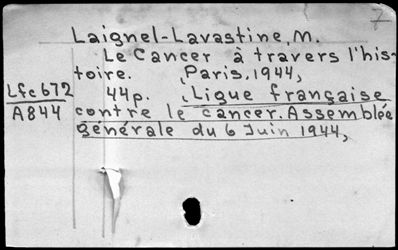 7
Laignel-Lavastine, M.
Le Cancer à travers l'his-
toire. Paris, 1944,
Lfc672
44p. Ligue française
A844
contre le cancer. Assemblée
générale du 6 Juin 1944,